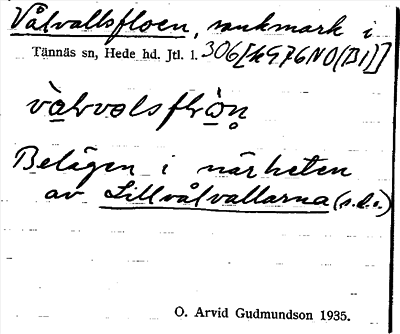 Vålvallsfloen, sankmark i
Tännäs sn, Hede hd. Jtl. l. 306[k976NO(B1)]
Belägen i närheten
av Lillvålvallarna (s.d.o.)
O. Arvid Gudmundson 1935.